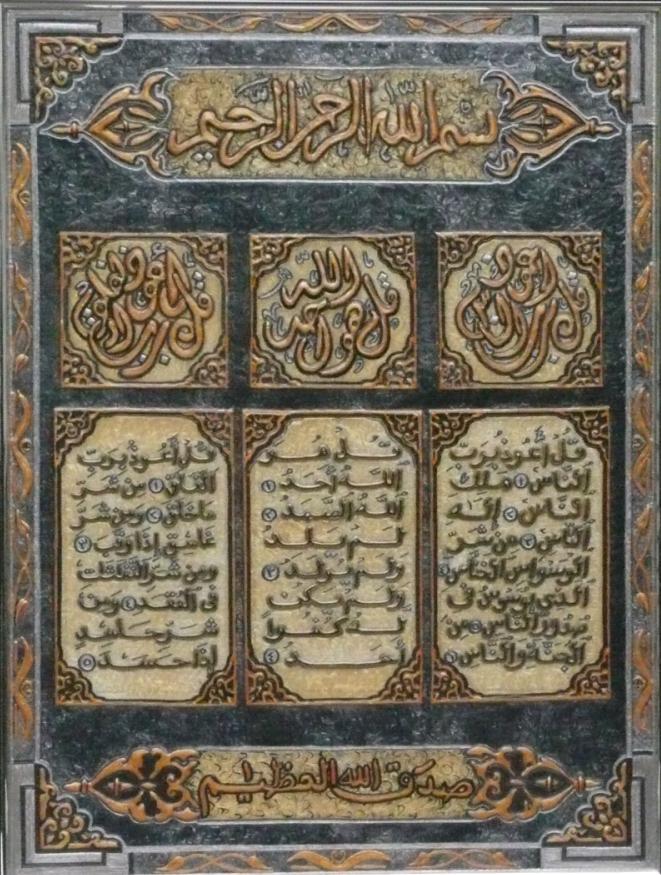 بسم الله الرحمن الرحيم
قل أعوذ برب الناس
قل هو الله أحد
قل أعوذ برب الفلق
قل أعوذ برب
الناس ١ ملك
الناس ٢ إله
الناس ٣ من شر
الوسواس الخناس ٤
الذي يوسوس في
صدور الناس ٥ من
الجنة والناس ٦
قل هو
الله أحد ١
الله الصمد ٢
لم يلد
ولم يولد ٣
ولم يكن
له كفوا
أحد ٤
قل أعوذ برب
الفلق ١ من شر
ما خلق ٢ ومن شر
غاسق إذا وقب ٣
ومن شر النفثت
في العقد ٤ ومن
شر حاسد
إذا حسد ٥
صدق الله العظيم